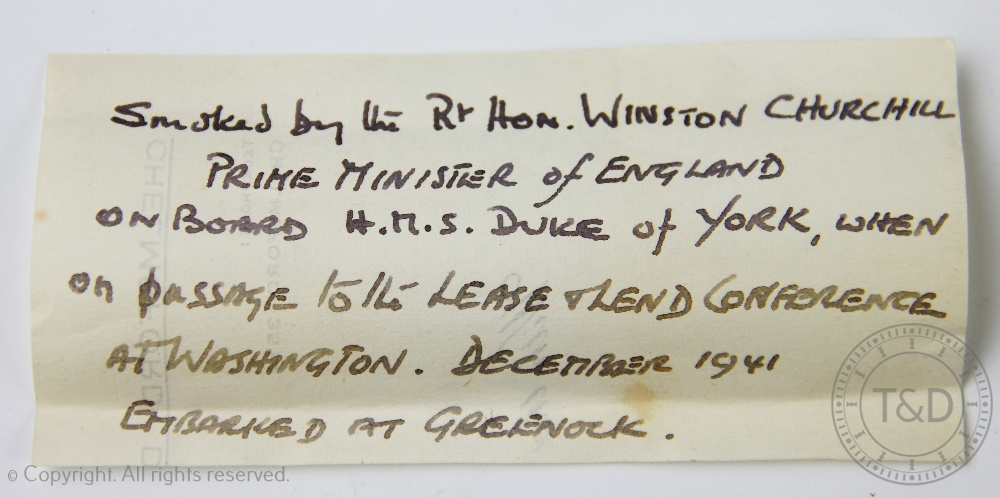 Smoked by the Rt Hon. WINSTON CHURCHILL
PRIME MINISTER of ENGLAND
ON BOARD H.M.S. DUKE of YORK, WHEN
on passage to the LEASE & LEND CONFERENCE
AT WASHINGTON. DECEMBER 1941
EMBARKED AT GREENOCK.
T&D
© Copyright. All rights reserved.